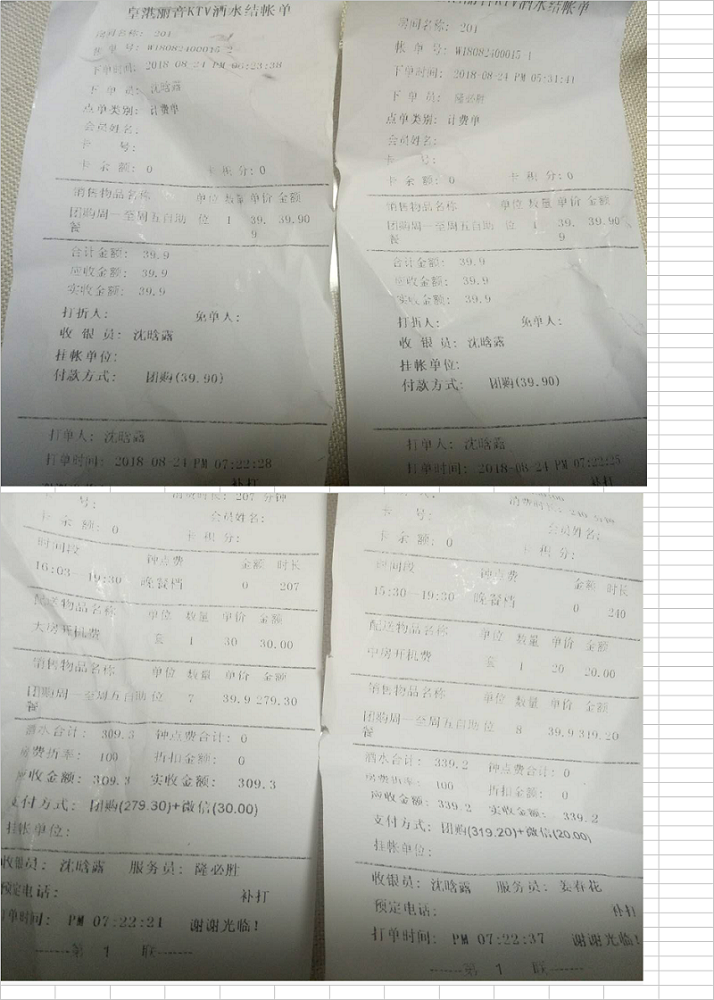 皇港丽音KTV酒水结帐单
房间名称: 201
帐 单 号: WT8082400015-2
下单时间: 2018-08-24 PM 06:23:38
下 单 员: 沈晗露
点单类别: 计费单
会员姓名:
卡 号:
卡 余 额: 0 卡 积 分: 0
销售物品名称 单位 数量 单价 金额
团购周一至周五自助 位 1 39. 39.90
餐 9
合计金额: 39.9
应收金额: 39.9
实收金额: 39.9
打折人: 免单人:
收 银 员: 沈晗露
挂帐单位:
付款方式: 团购(39.90)
打单人: 沈晗露
打单时间: 2018-08-24 PM 07:22:28
补打
丽音KTV酒水结帐单
房间名称: 201
帐 单 号: WT8082400015-1
下单时间: 2018-08-24 PM 05:31:41
下 单 员: 隆必胜
点单类别: 计费单
会员姓名:
卡 号:
卡 余 额: 0 卡 积 分: 0
销售物品名称 单位 数量 单价 金额
团购周一至周五自助 位 1 39. 39.90
餐 9
合计金额: 39.9
应收金额: 39.9
实收金额: 39.9
打折人: 免单人:
收 银 员: 沈晗露
挂帐单位:
付款方式: 团购(39.90)
打单人: 沈晗露
打单时间: 2018-08-24 PM 07:22:25
补打
号: 消费时长: 207 分钟
卡 余 额: 0 会员姓名:
卡 积 分:
时间段 钟点费 金额 时长
16:03--19:30 晚餐档 0 207
配送物品名称 单位 数量 单价 金额
大房开机费 套 1 30 30.00
销售物品名称 单位 数量 单价 金额
团购周一至周五自助 位 7 39.9 279.30
餐
酒水合计: 309.3 钟点费合计: 0
房费折率: 100 折扣金额: 0
应收金额: 309.3 实收金额: 309.3
支付方式: 团购(279.30)+微信(30.00)
挂帐单位:
收银员: 沈晗露 服务员: 隆必胜
预定电话: 补打
打单时间: PM 07:22:21 谢谢光临!
------第 1 联------
消费时长: 240 分钟
卡 号: 会员姓名:
卡 余 额: 0 卡 积 分:
时间段 钟点费 金额 时长
15:30--19:30 晚餐档 0 240
配送物品名称 单位 数量 单价 金额
中房开机费 套 1 20 20.00
销售物品名称 单位 数量 单价 金额
团购周一至周五自助 位 8 39.9 319.20
餐
酒水合计: 339.2 钟点费合计: 0
房费折率: 100 折扣金额: 0
应收金额: 339.2 实收金额: 339.2
支付方式: 团购(319.20)+微信(20.00)
挂帐单位:
收银员: 沈晗露 服务员: 姜春花
预定电话: 补打
打单时间: PM 07:22:37 谢谢光临!
------第 1 联------